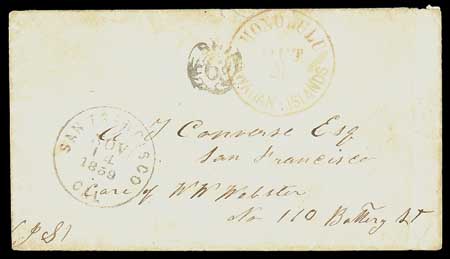 HONOLULU
OCT
HAWAIIAN ISLANDS
SHIP
SAN FRANCISCO
NOV
14
1859
CAL
Converse Esq
San Francisco
Care of W W Webster
No 110 Battery St
(P S)